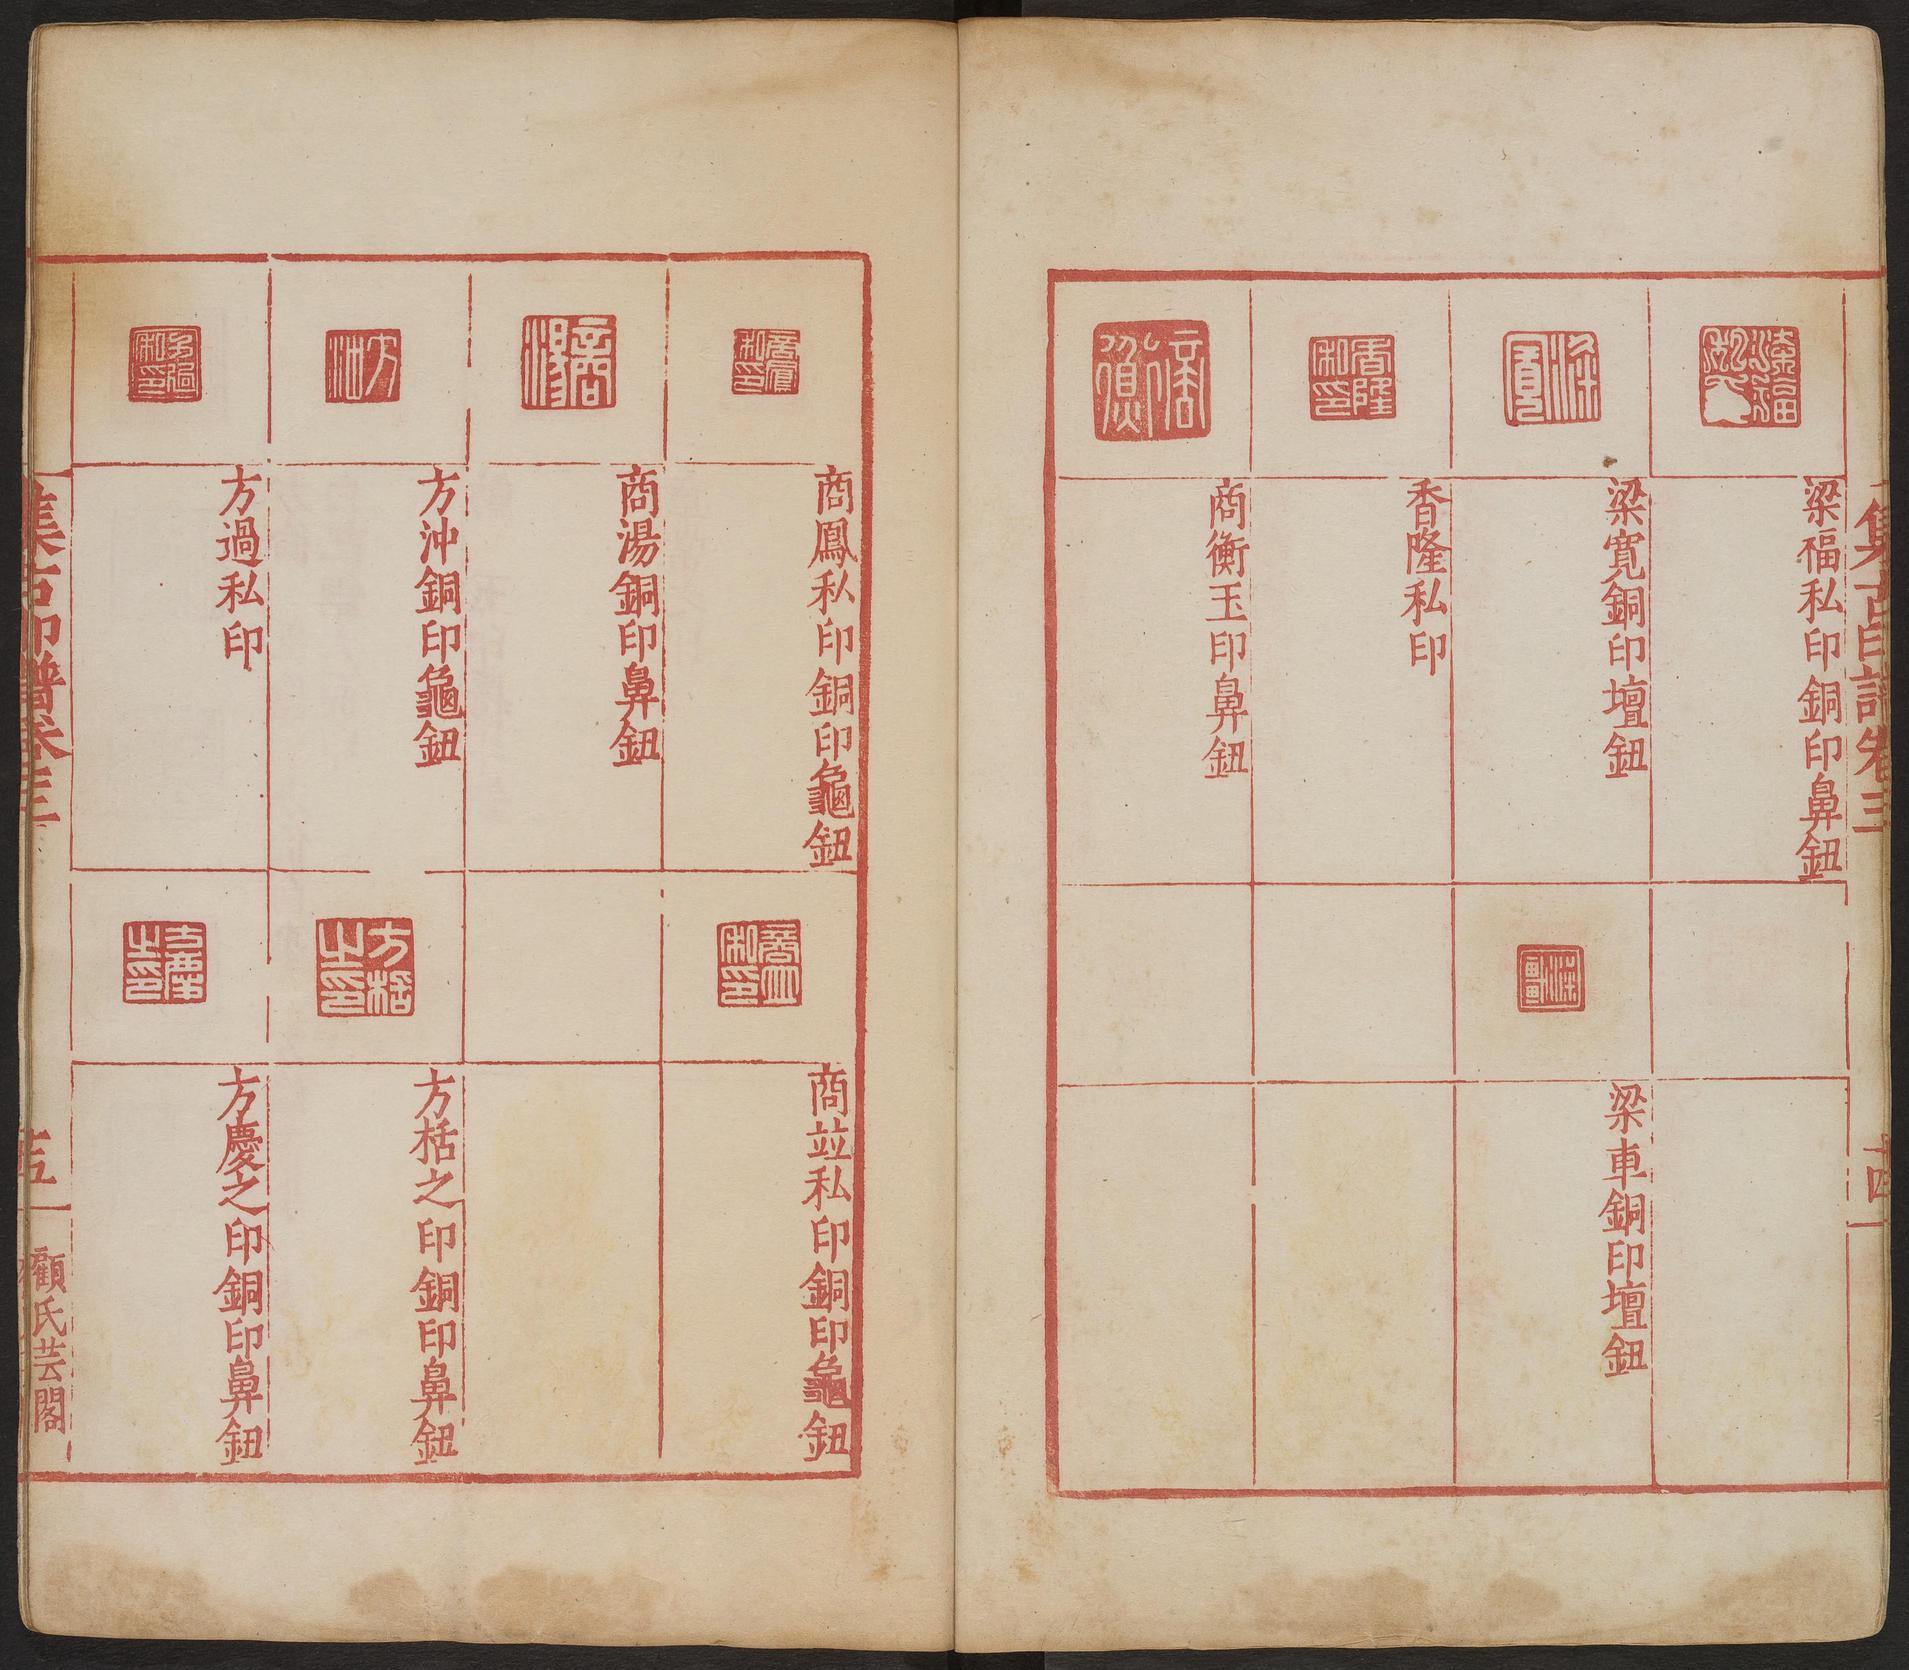 集古印譜卷三
十四
梁福私印銅印鼻鈕
梁寬銅印壇鈕
梁車銅印壇鈕
香隆私印
商衡玉印鼻鈕
商鳳私印銅印龜鈕
商並私印銅印龜鈕
商湯銅印鼻鈕
方沖銅印龜鈕
方栝之印銅印鼻鈕
方過私印
方慶之印銅印鼻鈕
集古印譜卷三
十五
顧氏芸閣